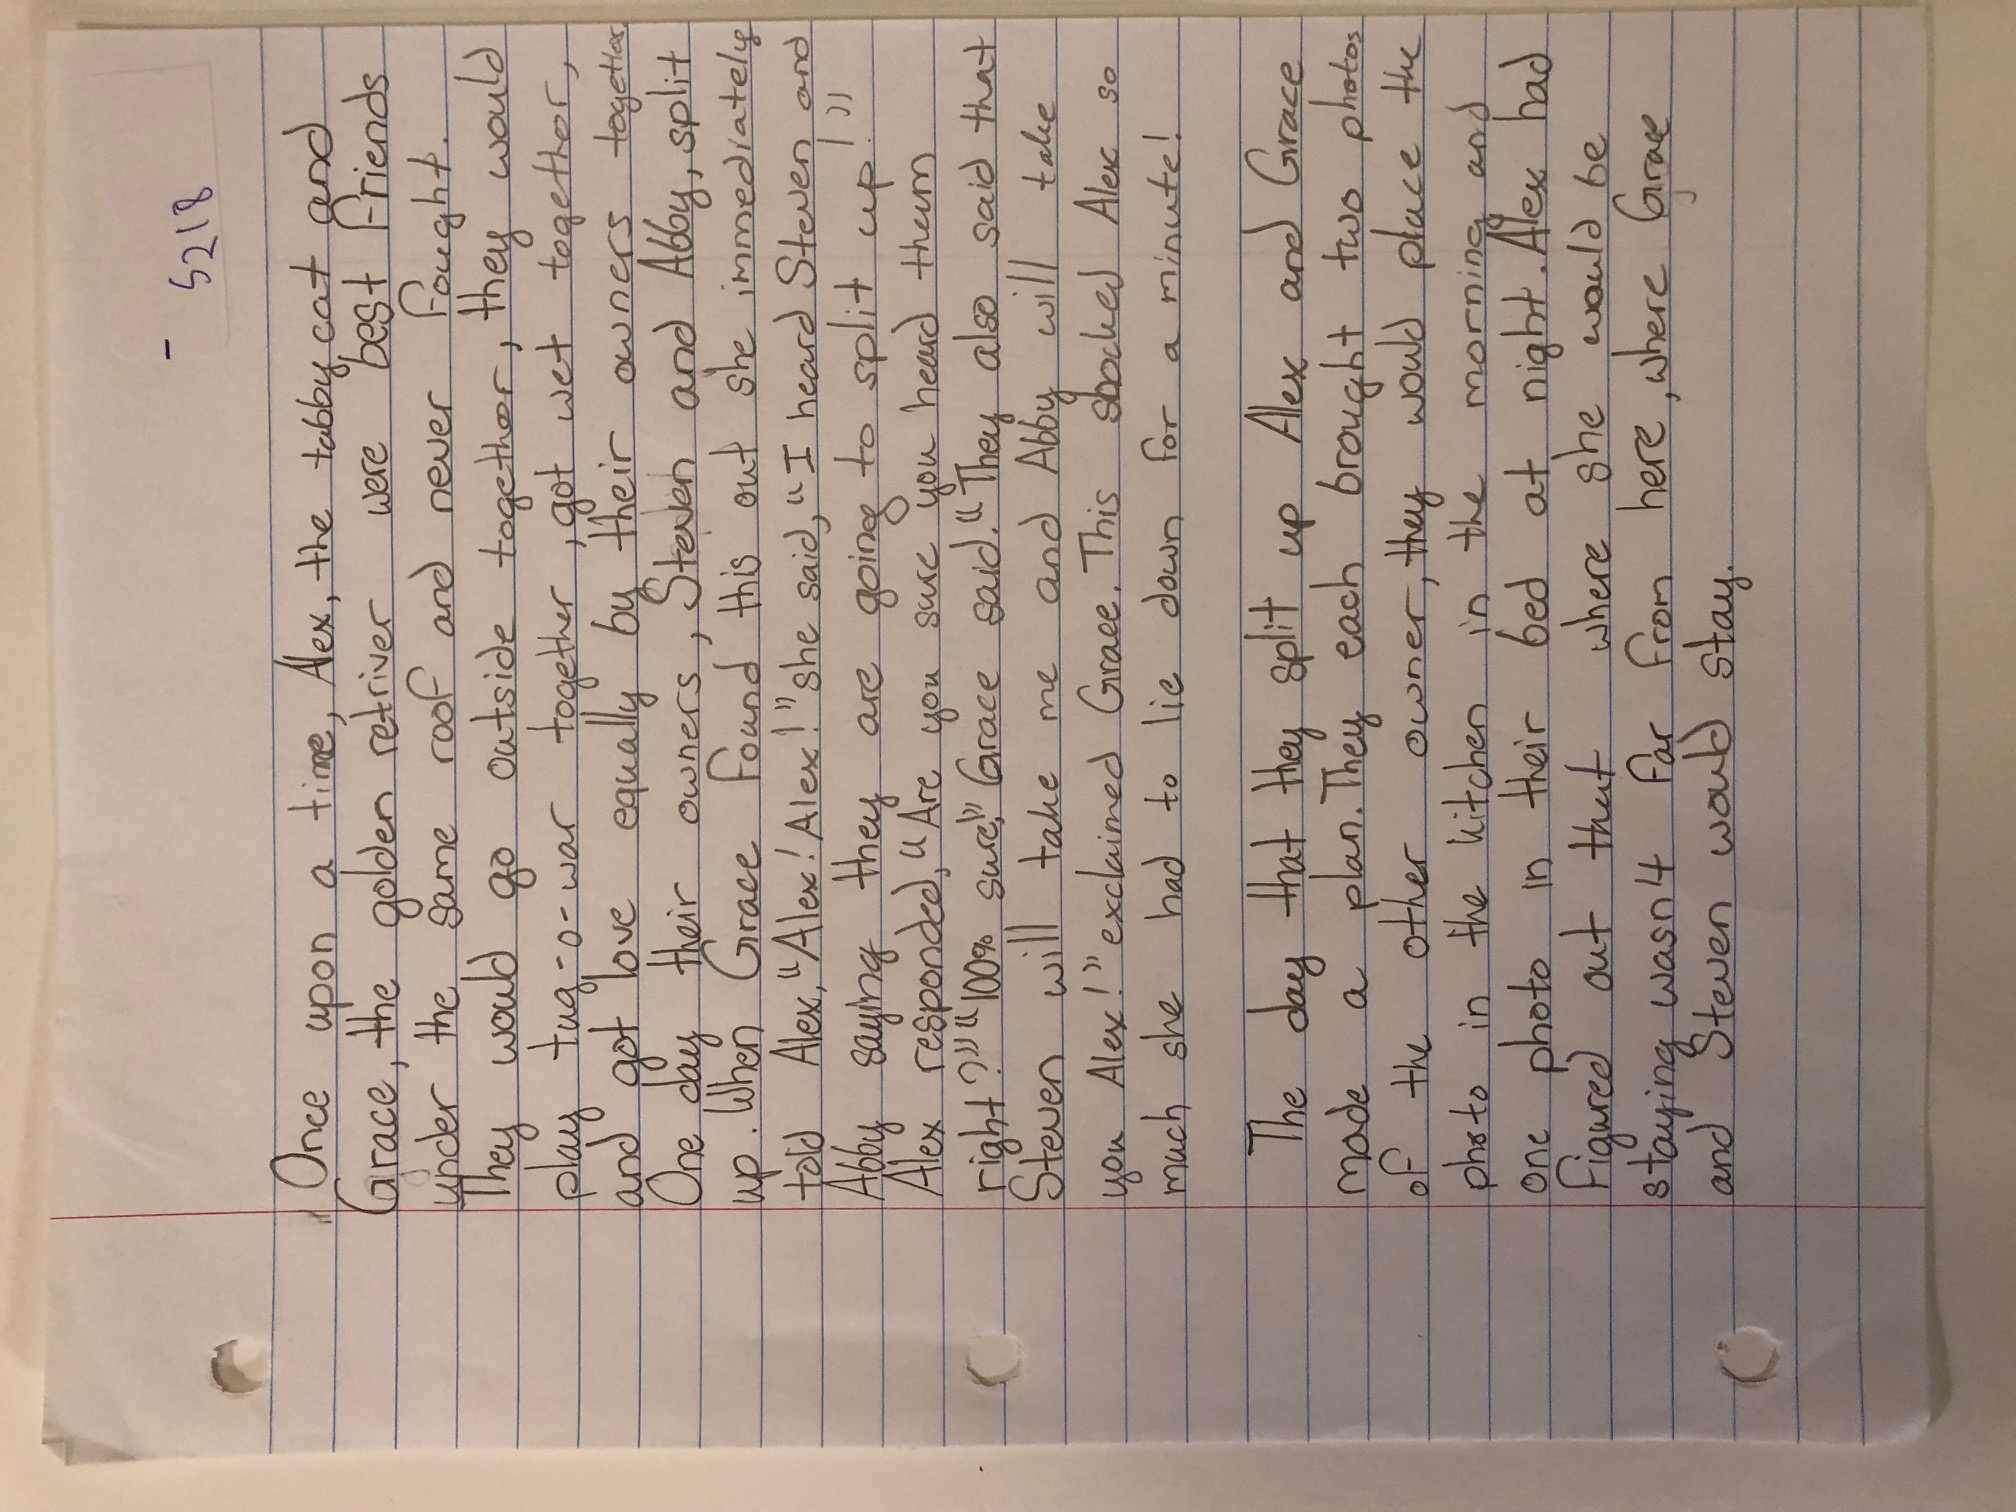 - 5218
Once upon a time, Alex, the tabby cat and
Grace, the golden retriver were best friends
under the same roof and never fought.
They would go outside together, they would
play tug-o-war together, got wet together,
and got love equally by their owners together.
One day their owners, Steven and Abby, split
up. When Grace found this out she immediately
told Alex, "Alex! Alex!" she said, "I heard Steven and
Abby saying they are going to split up!"
Alex responded, "Are you sure you heard them
right?" "100% sure!" Grace said. "They also said that
Steven will take me and Abby will take
you Alex!" exclaimed Grace. This shocked Alex so
much she had to lie down for a minute!
The day that they split up Alex and Grace
made a plan. They each brought two photos
of the other owner, they would place the
photo in the kitchen in the morning and
one photo in their bed at night. Alex had
figured out that where she would be
staying wasn't far from here, where Grace
and Steven would stay.